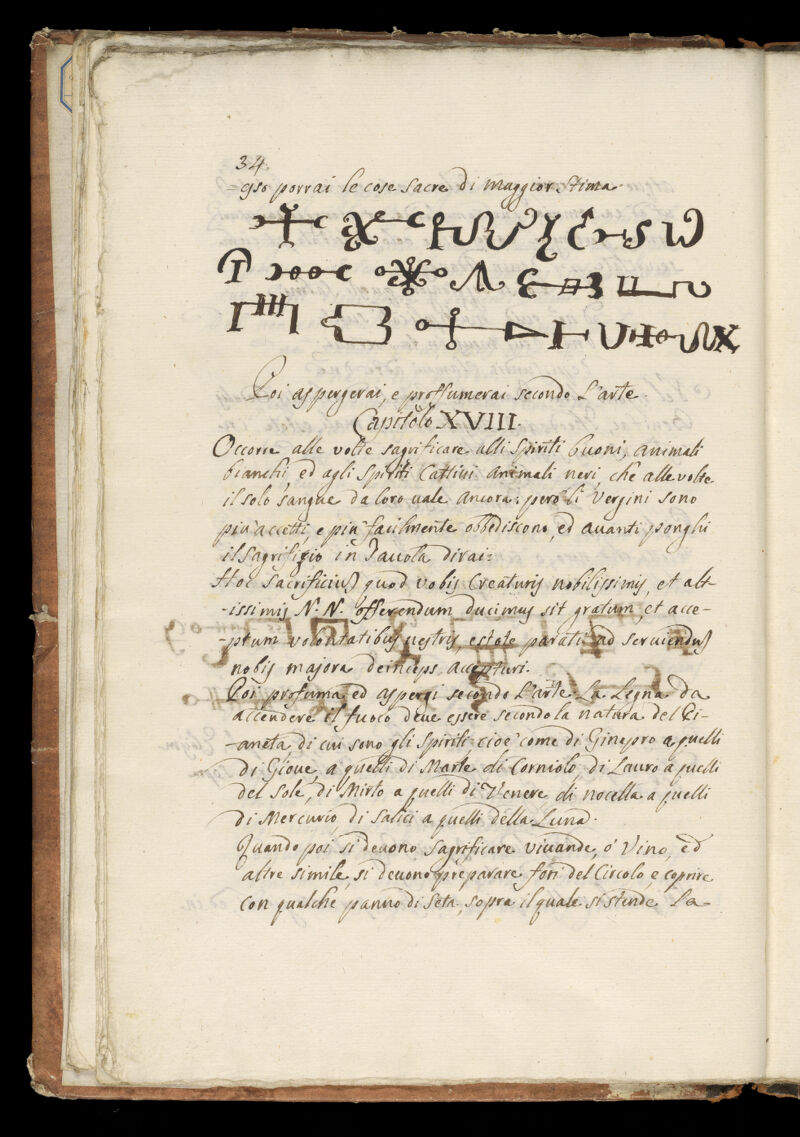 34.
=esso porrai le cose sacre di maggior stima.
Poi aspergerai, e proffumerai secondo l'arte.
Capitolo XVIII.
Occorre alle volte sagrificare alli Spiriti buoni, animali
bianchi ed agli Spiriti Cattivi animali neri, che alle volte
il solo sangue da loro uale ancora; però li Vergini sono
più accetti, e più facilmente obbediscono, ed auanti ponghi
il sagrifizio in Tauola dirai:
Hoc Sacrificiuȝ quod vobis Creaturis nobilissimis, et alt-
-issimis N. N. offerendum ducimus sit gratum, et acce-
-ptum volontatibus vestris, estote parati ad seruienduȝ
nobis majora deinceps accepturi.
Poi profuma ed aspergi secondo l'arte. La Legna da
accendere il fuoco deue essere secondo la natura del Pi-
-aneta, di cui sono gli Spiriti cioè come di Ginepro a quelli
di Gioue, a quelli di Marte di Corniolo, di Lauro a quelli
del Sole, di Mirto a quelli di Venere di nocella a quelli
di Mercurio, di Salici a quelli della Luna.
Quando poi si deuono sagrificare viuande, ò Vino, ed
altre simile, si deuono preparare fori del Circolo, e coprire
con qualche panno di seta, sopra il quale si stende la-